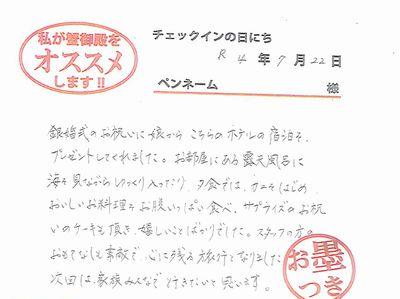 私が蟹御殿を
オススメ
します!!
チェックインの日にち
R 4 年 9 月 22 日
ペンネーム 様
銀婚式のお祝いに娘から こちらのホテルの宿泊を、
プレゼントしてくれました。お部屋にある露天風呂に
海を見ながらゆっくり入ったり、夕食では、カニをはじめ
おいしいお料理をお腹いっぱい食べ、サプライズのお祝
いのケーキも頂き、嬉しいことばかりでした。スタッフの方の
おもてなしも素敵で、心に残る旅行となりました。
次回は、家族みんなで行きたいと思います。
お墨
つき